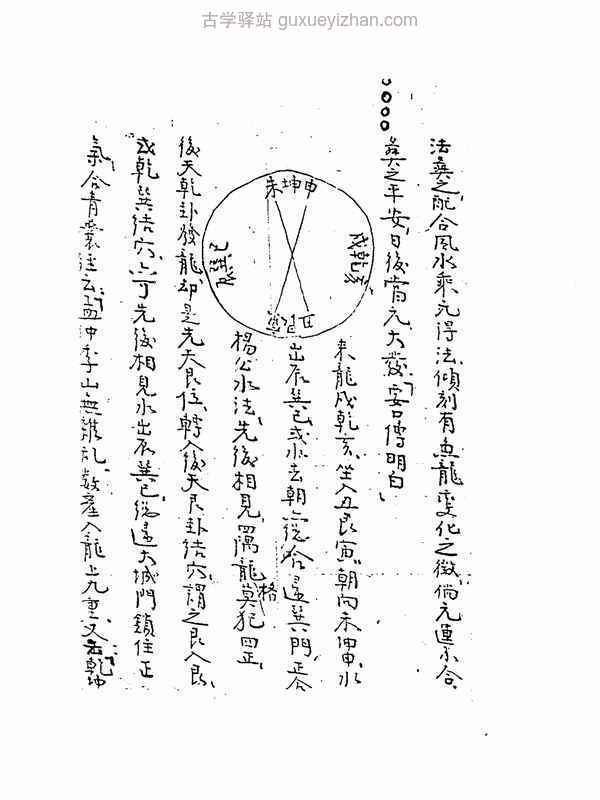 古学驿站 guxueyizhan.com
法奠之配合風水乘元得法傾刻有魚龍变化之徵倘元運不合
奠之平安日後當元大發要口傳明白
未坤申
戌乾亥
辰巽巳
丑艮寅
来龍戌乾亥坐入丑艮寅朝向未坤申水
出辰巽巳或水去朝從合還巽門正合
楊公水法先後相見四隅龍格莫犯四正
後天乾卦發龍却是先天艮位轉入後天艮卦結穴謂之艮入艮
或乾巽結穴亦可先後相見水出辰巽巳從還大城門鎖住正
氣合青囊註云孟仲季山無雜乱數產入龍上九重又云乾坤